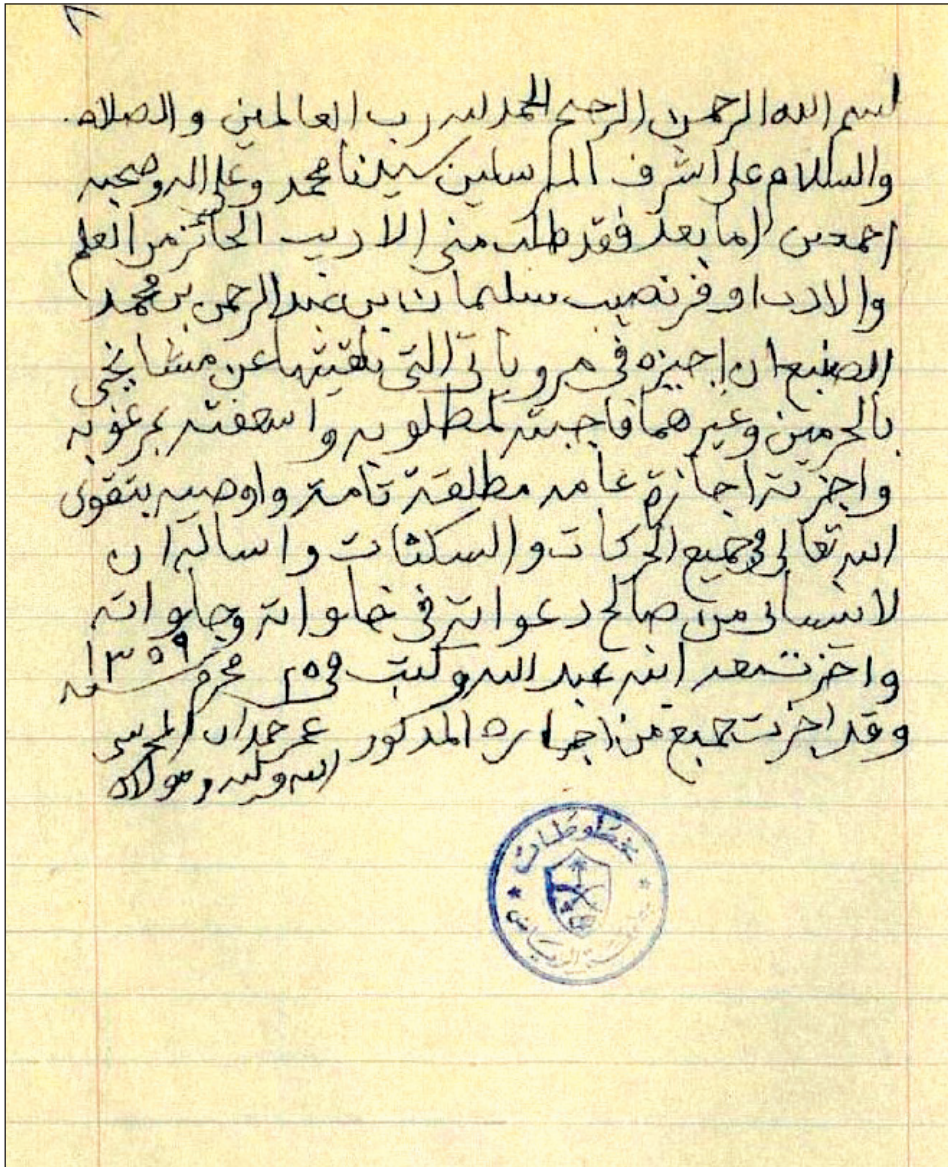 ٨
بسم الله الرحمن الرحيم الحمد لله رب العالمين والصلاه
والسلام على اشرف المرسلين سيدنا محمد وعلى اله وصحبه
اجمعين اما بعد فقد طلب مني الاديب الحائز من العلم
والادب اوفر نصيب سليمان بن عبد الرحمن بن محمد
الصنيع ان اجيزه في مروياتي التي تلقيتها عن مشايخي
بالحرمين وغيرهما فاجبته لمطلوبه واسعفته بمرغوبه
واجزته اجازة عامه مطلقة تامة واوصيه بتقوى
الله تعالى في جميع الحركات والسكنات واساله ان
لا ينساني من صالح دعواته في خلواته وجلواته
واجزت ابنه عبد الله وكتب في ٢٥ محرم سنه ١٣٥٩
وقد اجزت جميع من اجازه المذكور عمر حمدان المحرسي
الله وليه ومولاه
مخطوطات
الرياض